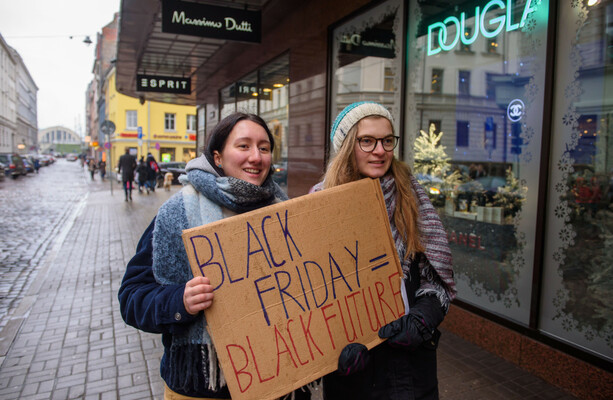 Massimo Dutti
ESPRIT
DOUGLA
CHANEL
BLACK
FRIDAY =
BLACK FUTURE